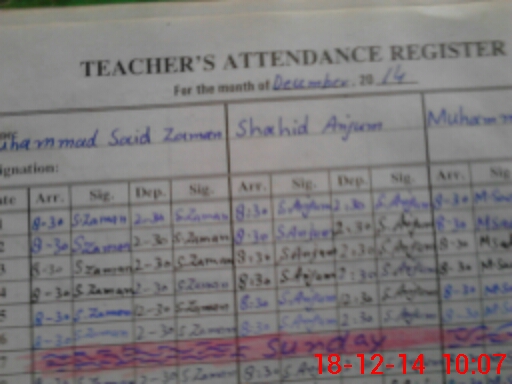 TEACHER'S ATTENDANCE REGISTER
For the month of December. 2014
uhammad Said Zaman Shahid Anjum Muhamm
signation:
ate Arr. Sig. Dep. Sig. Arr. Sig. Dep. Sig. Arr. Sig.
1 8-30 S.Zaman 2-30 S.Zaman 8:30 S.Anjum 2:30 S.Anjum 8-30
2 8-30 S.Zaman 2-30 S.Zaman 8:30 S.Anjum 2:30 S.Anjum 8-30
3 8-30 S.Zaman 2-30 S.Zaman 8:30 S.Anjum 2:30 S.Anjum 8-30
4 8-30 S.Zaman 2-30 S.Zaman 8:30 S.Anjum 2:30 S.Anjum 8-30
5 8-30 S.Zaman 2-30 S.Zaman 8:30 S.Anjum 2:30 S.Anjum 8-30
6 8-30 S.Zaman 2-30 S.Zaman 8:30 S.Anjum 2:30 S.Anjum 8-30
7 Sunday
18-12-14 10:07